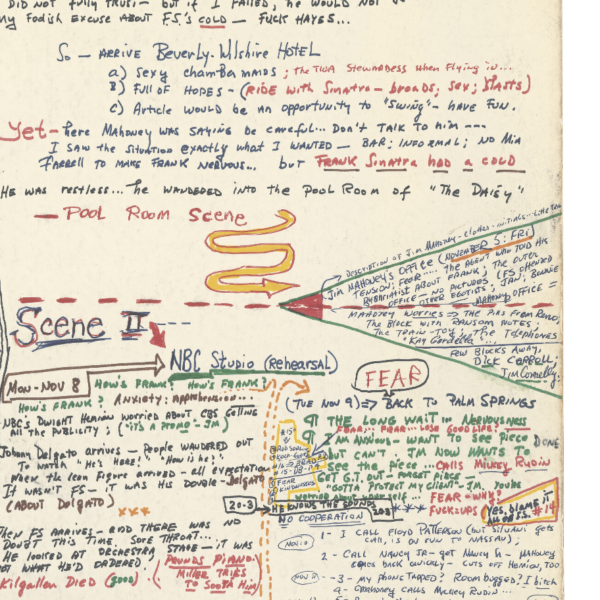 DID NOT fully TRUST — but if I FAILED, he WOULD NOT
my Fodish EXCUSE ABOUT F.S.'s COLD — FUCK HAYES...
So — ARRIVE Beverly-Wilshire HOTEL
a) Sexy chambermaids; the TWA Stewardess when flying in...
B) Full of HOPES - (RIDE with Sinatra - broads; sex; BLASTS)
C) Article would be an opportunity to "Swing" - HAVE FUN.
Yet — here Mahoney WAS SAYING be CAREFUL... DON'T TALK TO him ---
I SAW the Situation EXACTLY what I WANTED — BAR; INFORMAL; NO MIA
FARRELL TO MAKE FRANK NERVOUS... but FRANK Sinatra HAD a COLD
HE WAS RESTLESS... he WANDERED INTO the Pool Room of "The Daisy"
— Pool Room Scene
DESCRIPTION OF Jim MAHONEY - Clothes - initials -
Jim MAHONEY'S OFFICE (NOVEMBER 5: FRI)
TENSION; FEAR.... THE AGENT WHO TOLD HIS
PUBLICIST ABOUT FRANK; THE OUTER
OFFICE - NO PICTURES (FS OFFENDED
OTHER EGOTISTS; JAN; BONNIE
MAHONEY OFFICE =
MAHONEY WORRIES => THE PIGS FROM RENO,
The Block with RANSOM NOTES;
The TRAIN-TOY; The Telephones
"Kay Gardella ...
FEW BLOCKS AWAY,
DICK CARROLL;
Jim Connelly
Scene II
NBC Studio (Rehearsal)
MON - NOV 8
HOW'S FRANK? HOW'S FRANK?
HOW'S FRANK? ANXIETY: Apprehension...
NBC'S DWIGHT HEMION WORRIED ABOUT CBS GETTING
All THE PUBLICITY; ("IT'S A PROMO - JM)
Johnny Delgato ARRIVES - PEOPLE WANDERED OUT
TO WATCH "HE'S HERE!" "HOW is he?"
When the Icon Figure arrived - all expectation
IT WASN'T FS - IT WAS HIS DOUBLE - DELGATO
(ABOUT DELGATO)
Then FS ARRIVES - AND THERE WAS NO
DOUBT THIS TIME. SORE THROAT...
HE LOOKED AT ORCHESTRA STAGE - IT WAS
NOT WHAT HE'D ORDERED!
Kilgallen Died (good)
(POUNDS PIANO:
MILLER TRIES
TO SOOTH HIM)
FEAR
(TUE NOV 9) => BACK TO PALM SPRINGS
¶ THE LONG WAIT IN NERVOUSNESS
FEAR... FEAR... LOSE GOOD LIFE?
¶ I AM ANXIOUS - WANT TO SEE PIECE DONE
BUT CAN'T. JM NOW WANTS TO
SEE the PIECE... CALLS MICKEY RUDIN
GET G.T. OUT - FORGET PIECE -
"GOTTA PROTECT MY CLIENT" - JM. YOU'RE
WORRIED ABOUT YOURSELF... FEAR - WHY?
20-3
HE KNOWS THE SOUNDS
203
*** FUCK-UPS (YES, BLAME IT
ALL ON F.S. #14
NO COOPERATION
NOV 10
1 - I CALL FLOYD PATTERSON (BUT SILVANI gets
CAR, IS ON FUN TO NASSAU).
2 - CALL NANCY JR - got NANCY Sr - MAHONEY
COMES BACK QUICKLY - CUTS OFF HEMION, TOO
NOV 11
-3 - MY PHONE TAPPED? ROOM BUGGED? I bitch
a - MAHONEY CALLS MICKEY RUDIN...